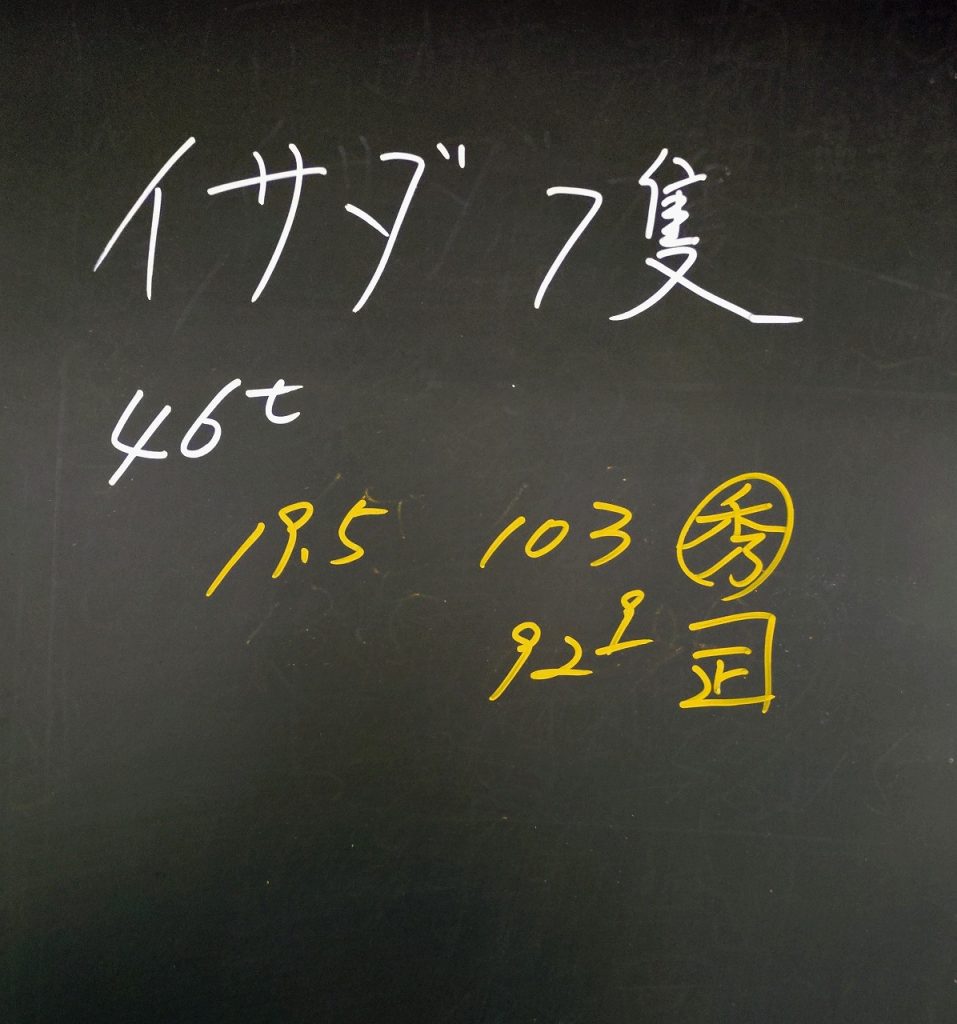 イサダ 7隻
46t
19.5 103 ㊙秀
92⁹ 正